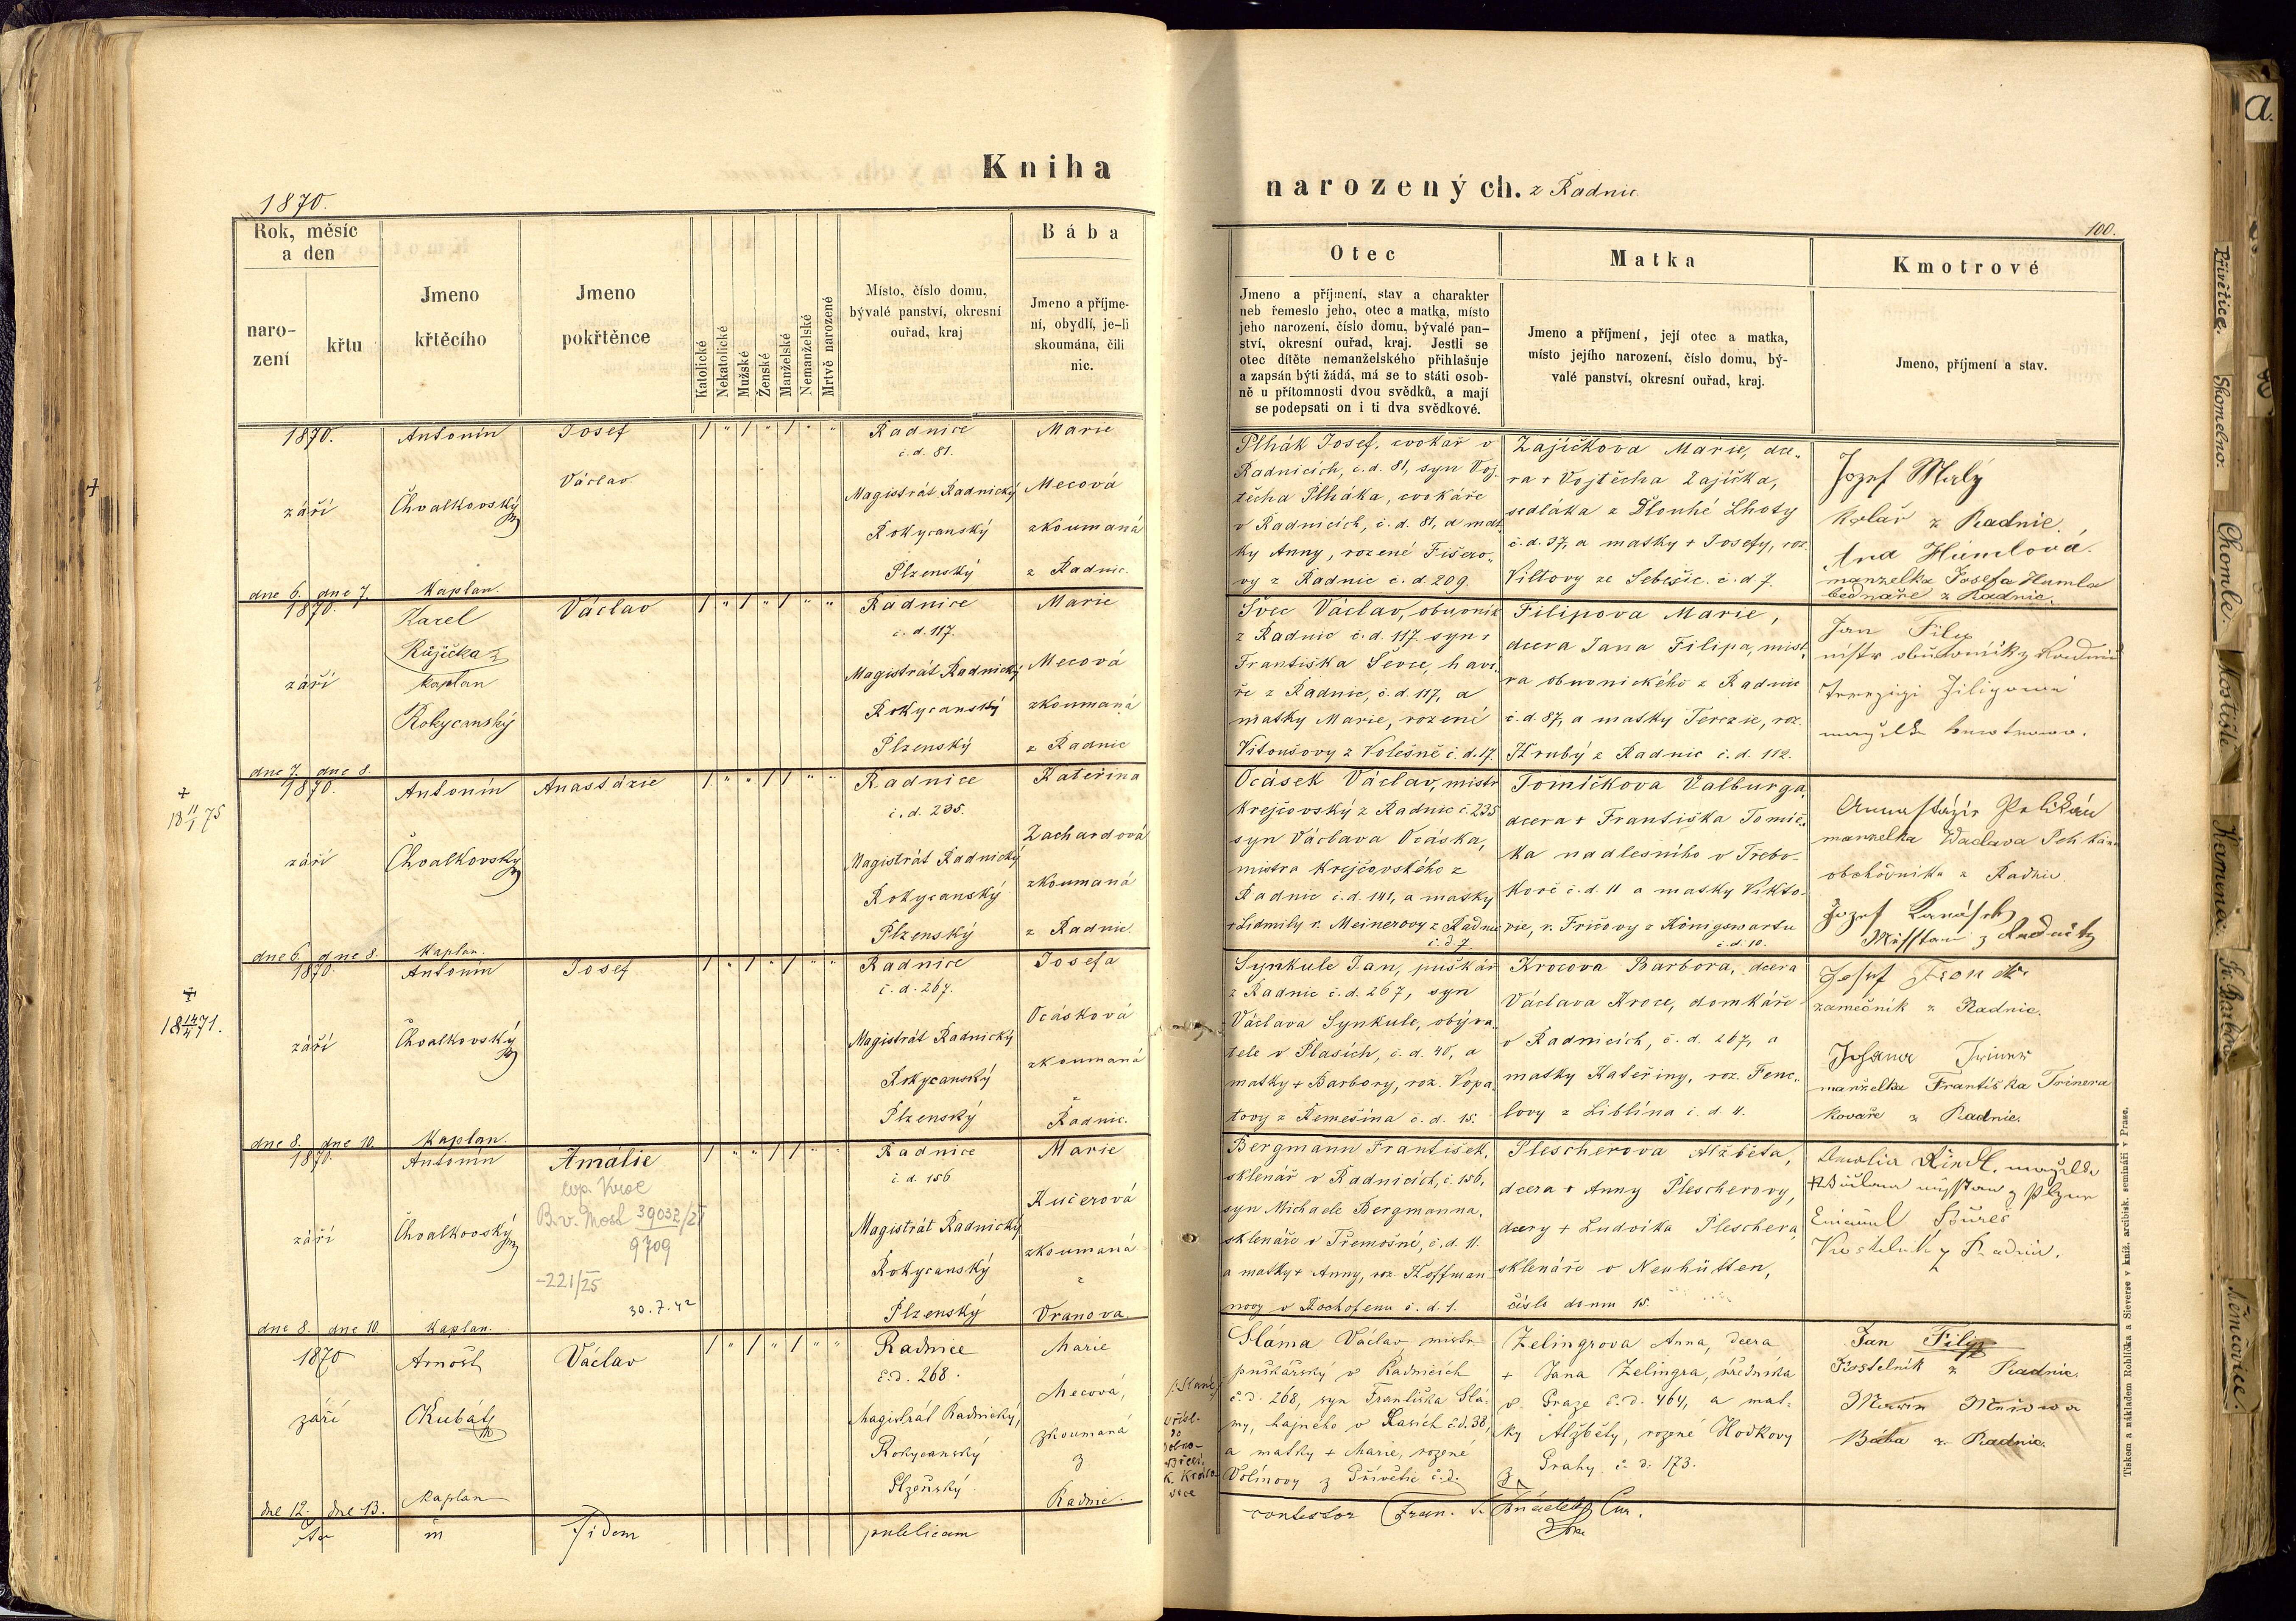 Kniha
narozených. z Radnic
1870.
100.
Rok, měsíc
a den
naro-
zení
křtu
Jmeno
křtěcího
Jmeno
pokřtěnce
Katolické
Nekatolické
Mužské
Ženské
Manželské
Nemanželské
Mrtvě narozené
Místo, číslo domu,
bývalé panství, okresní
ouřad, kraj
Bába
Jmeno a příjme-
ní, obydlí, je-li
skoumána, čili
nic.
Otec
Jmeno a příjmení, stav a charakter
neb řemeslo jeho, otec a matka, místo
jeho narození, číslo domu, bývalé pan-
ství, okresní ouřad, kraj. Jestli se
otec dítěte nemanželského přihlašuje
a zapsán býti žádá, má se to státi osob-
ně u přítomnosti dvou svědků, a mají
se podepsati on i ti dva svědkové.
Matka
Jmeno a příjmení, její otec a matka,
místo jejího narození, číslo domu, bý-
valé panství, okresní ouřad, kraj.
Kmotrové
Jmeno, příjmení a stav.
1870.
září
dne 6. dne 7.
Antonín
Chvalkovský
Kaplan.
Josef
Václav.
1 " 1 " 1 " "
Radnice
č. d. 81.
Magistrát Radnický
Rokycanský
Plzenský
Marie
Mecová
zkoumaná
z Radnic.
Plhák Josef, cvokař v
Radnicích, č. d. 81, syn Voj-
těcha Plháka, cvokáře
v Radnicích, č. d. 81, a mat
ky Anny, rozené Fišero-
vy z Radnic č. d. 209.
Zajíčkova Marie, dce-
ra + Vojtěcha Zajíčka,
sedláka z Dlouhé Lhoty
č. d. 37, a matky + Josefy, roz.
Viltovy ze Sebešic. č. d. 7.
Jozef Malý
kolář z Radnic.
Humlová.
manželka Josefa Humla
bednáře z Radnic.
1870.
září
dne 7. dne 8.
Karel
Růžička
kaplan
Rokycanský
Václav
1 " 1 " 1 " "
Radnice
č. d. 117.
Magistrát Radnický
Rokycanský
Plzenský
Marie
Mecová
zkoumaná
z Radnic
Švec Václav, obuvník
z Radnic č. d. 117 syn +
Františka Ševce, haví-
ře z Radnic, č. d. 117, a
matky Marie, rozené
Vitoušovy z Volešně č. d. 17.
Filipova Marie,
dcera Jana Filipa, mist-
ra obuvnického z Radnic
č. d. 87, a matky Terezie, roz.
Hrubý z Radnic č. d. 112.
Jan Filip
+
18 11/1 75
1870.
září
dne 6. dne 8.
Antonín
Chvalkovský
Kaplan.
Anastázie
1 " " 1 1 " "
Radnice
č. d. 235.
Magistrát Radnický
Rokycanský
Plzenský
Kateřina
Zachardová
zkoumaná
z Radnic.
Ocásek Václav, mistr
krejčovský z Radnic č. 235
syn Václava Ocáska,
mistra krejčovského z
Radnic č. d. 141, a matky
+ Lidmily r. Meinerovy z Radnic
č. d. 7
Tomíčkova Valburga,
dcera + Františka Tomíč-
ka nadlesního v Třebo-
koř č. d. 11 a matky Vikto-
rie, r. Fričovy z Königswartu
č. d. 10.
Annastázie Pelikán
manželka Waclava Pelikána
obchodníka z Radnic.
Jozef
+
18 14/4 71.
1870.
září
dne 8. dne 10.
Antonín
Chvalkovský
Kaplan.
Josef
1 " 1 " 1 " "
Radnice
č. d. 267.
Magistrát Radnický
Rokycanský
Plzenský
Josefa
Ocásková
zkoumaná
z
Radnic.
Synkule Jan, puškář
z Radnic č. d. 267, syn
Václava Synkule, obýva-
tele v Plasích, č. d. 40, a
matky + Barbory, roz. Vopa-
tovy z Řemešína č. d. 15.
Krocova Barbora, dcera
Václava Kroce, domkáře
v Radnicích, č. d. 267, a
matky Kateřiny, roz. Fenc-
lovy z Liblína č. d. 4.
Josef
zámečník z Radnic.
manželka Františka Trinera
kováře z Radnic.
1870.
září
dne 8. dne 10
Antonín
Chvalkovský
Kaplan.
Amálie
B. v. Most 39032/21
9709
-221/25
30.7.42
1 " " 1 1 " "
Radnice
č. d. 156
Magistrát Radnický
Rokycanský
Plzenský
Marie
Kučerová
zkoumaná
z
Vranova.
Bergmann František,
sklenář v Radnicích, č. 156,
syn Michaele Bergmanna,
sklenáře v Třemošné, č. d. 11.
a matky + Anny, roz. Hoffman-
novy v Hochofenu č. d. 1.
Plescherova Alžběta,
dcera + Anny Plescherovy,
dcery + Ludvíka Pleschera,
sklenáře v Neuhütten,
číslo domu 15.
Bureš
Kostelník z Radnic.
1870
září
dne 12. dne 13.
Arnošt
Kubát
kaplan
Václav
1 " 1 " 1 " "
Radnice
č. d. 268.
Magistrát Radnický,
Rokycanský
Plzeňský
Marie
Mecová,
zkoumaná
z
Radnic.
Sláma Václav, mistr
puškářský v Radnicích
č. d. 268, syn Františka Slá-
my, hajného v Plasích č. d. 38,
a matky + Marie, rozené
Volínovy z Přívětic č. d.
Zelingrova Anna, dcera
+ Jana Zelingra, úředníka
v Praze č. d. 464, a mat-
ky Alžběty, rozené Hodkovy
z Prahy č. d. 173.
Jan Filip
Kostelník z Radnic.
Bába z Radnic.
in
fidem
publicam
contestor Fran.
Tiskem a nákladem Rohlíčka a Sieverse v kníž. arcibisk. semináři v Praze.
a.
Přívětice.
Skomelno.
Chomle.
Mostiště
Kamenec.
Sv. Barbora
Němčovice.